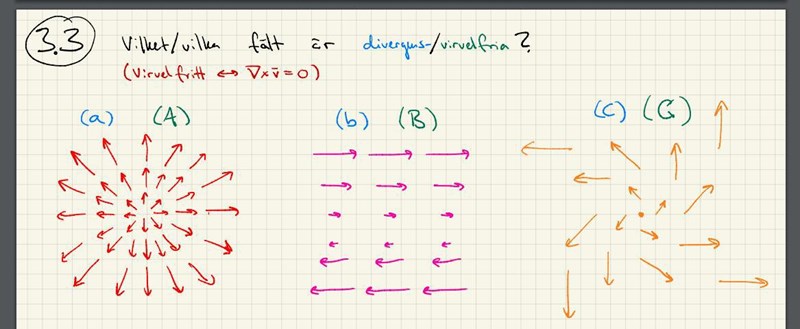 3.3 Vilket/vilka fält är divergens-/virvelfria?
(Virvelfritt ↔ ∇×v̄=0)
(a) (A) (b) (B) (c) (C)